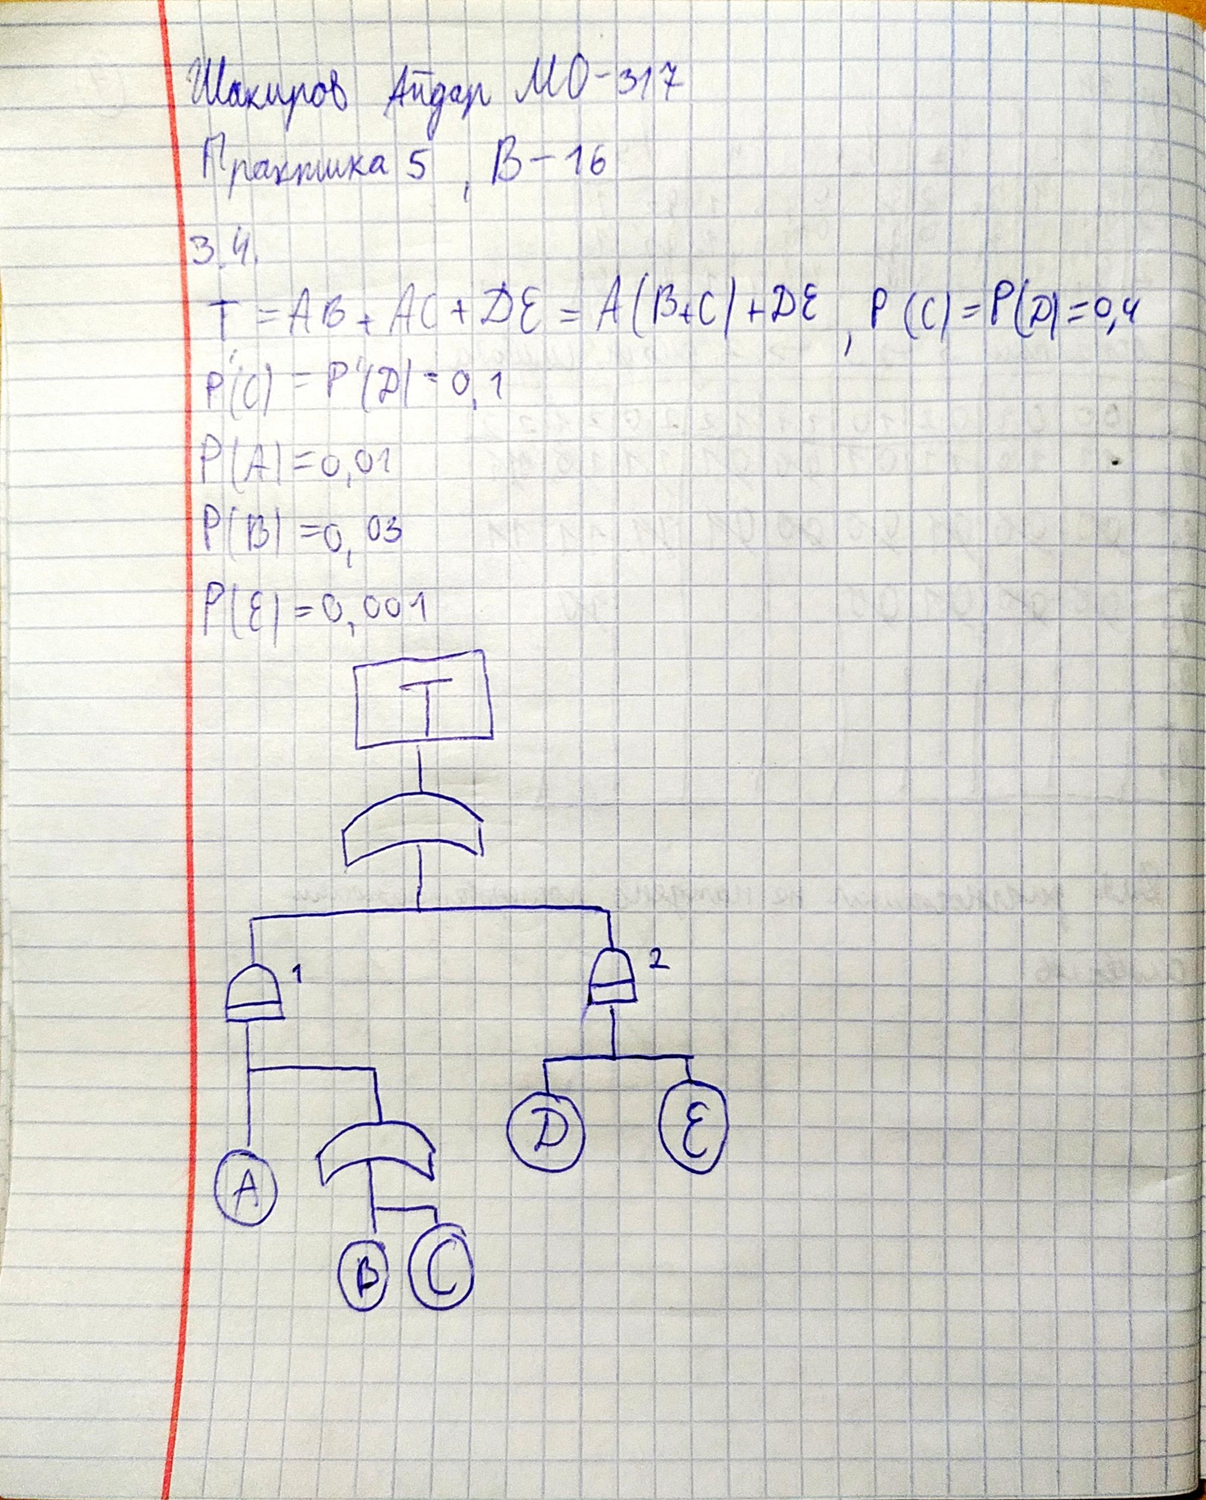 Шакиров Айдар МО-317
Практика 5, В-16
3.4.
T = AB + AC + DE = A(B+C) + DE, P(C) = P(D) = 0,4
P'(C) = P'(D) = 0,1
P(A) = 0,01
P(B) = 0,03
P(E) = 0,001
T
1
2
D
E
A
B
C